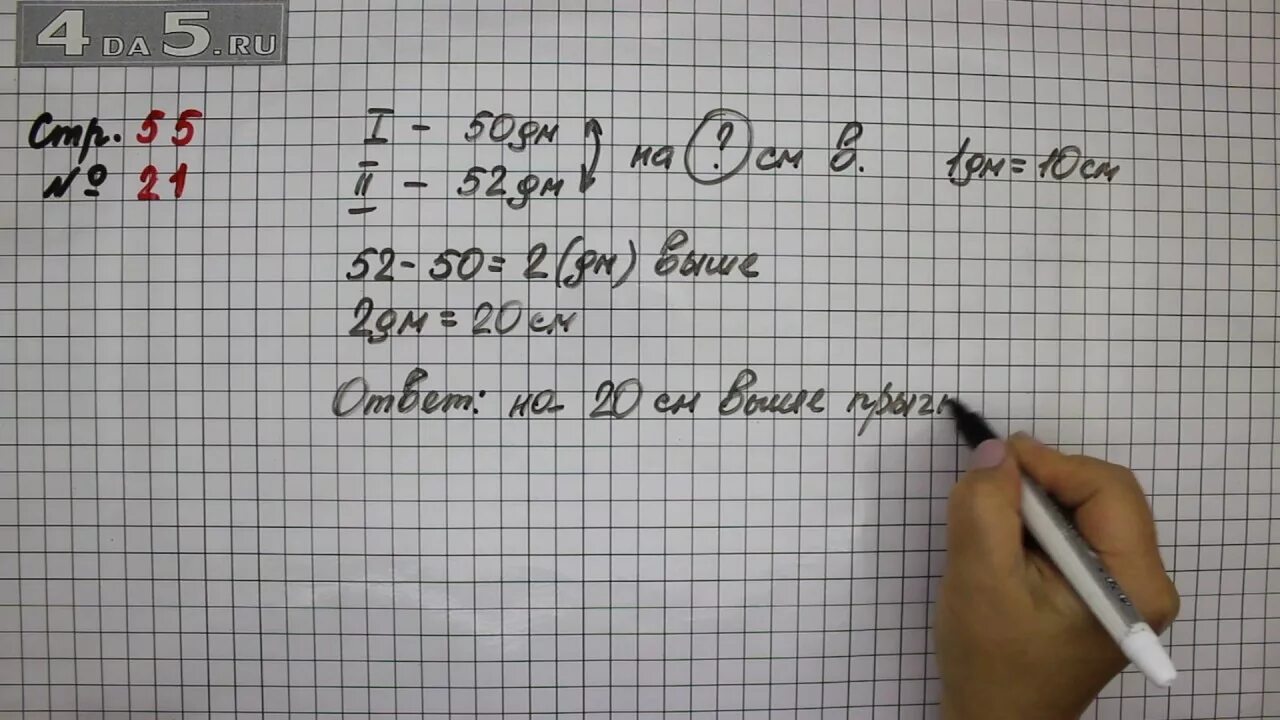 4DA5.RU
Стр. 55
№ 21
I - 50дм
II - 52дм
на ? см в.
1дм = 10см
52 - 50 = 2 (дм) выше
2дм = 20см
Ответ: на 20 см выше прыгн